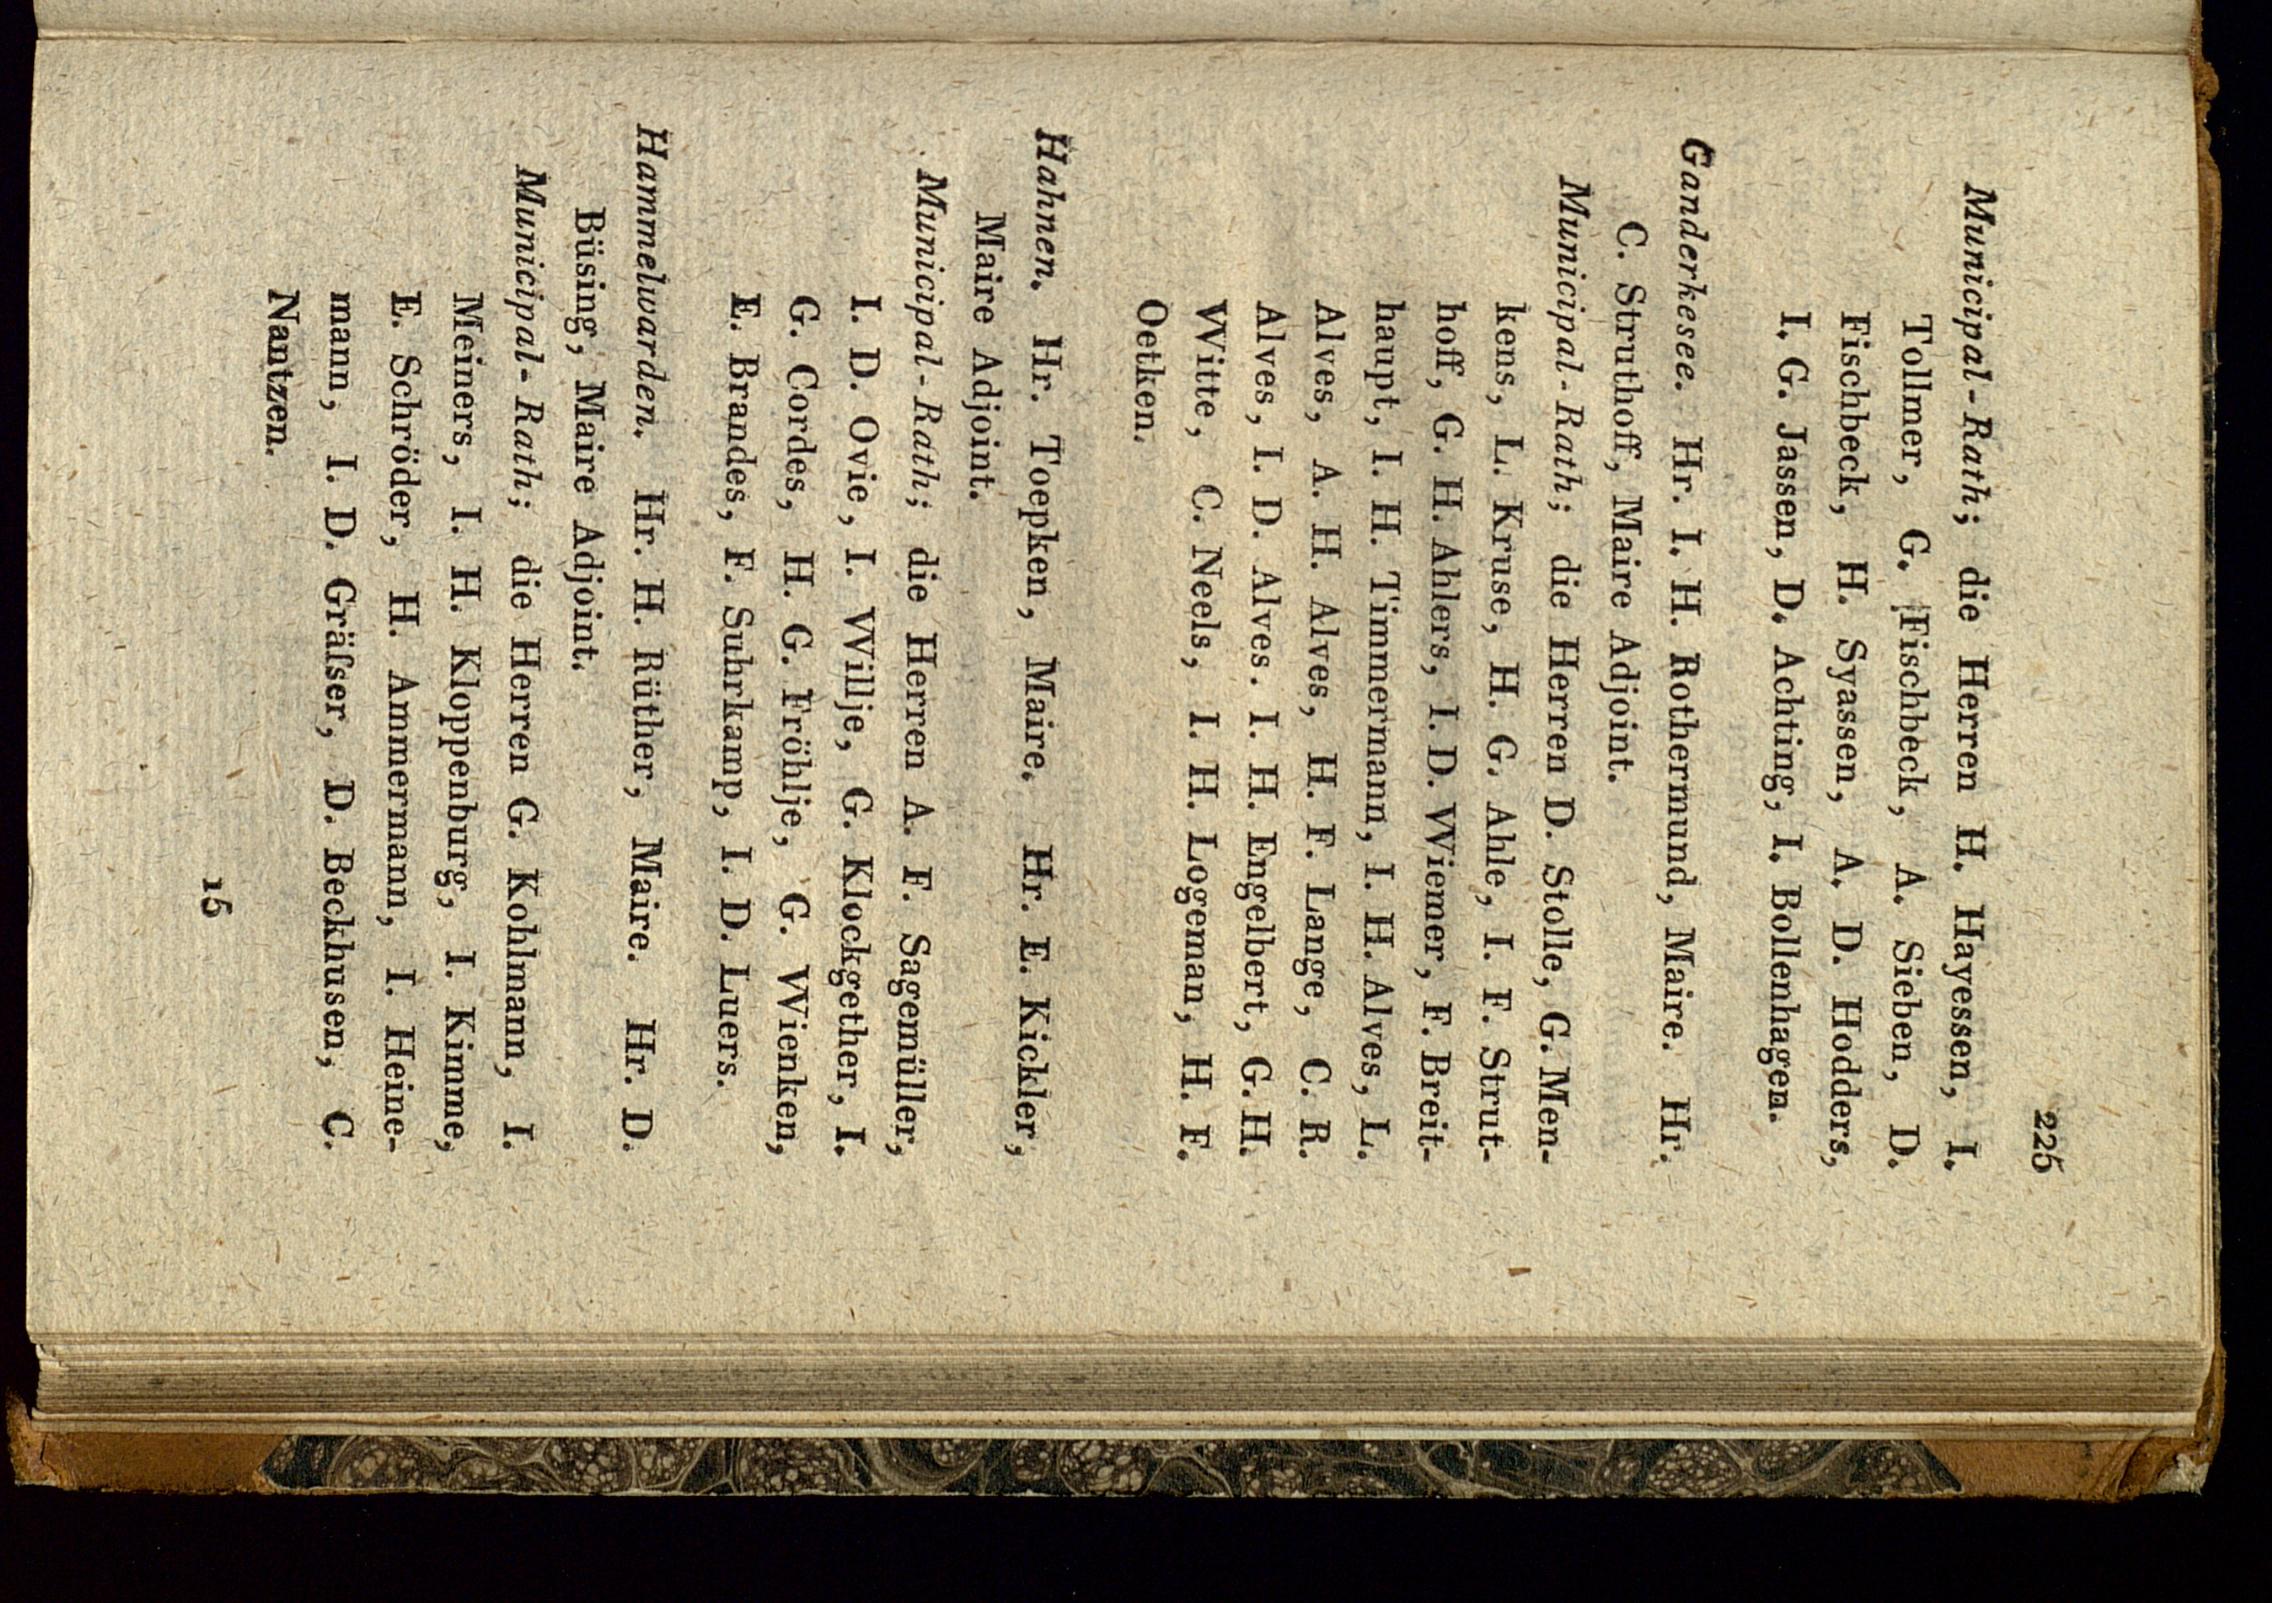 225
Municipal-Rath; die Herren H. Hayessen, I.
Tollmer, G. Fischbeck, A. Sieben, D.
Fischbeck, H. Syassen, A. D. Hodders,
I. G. Jassen, D. Achting, I. Bollenhagen.
Ganderkesee. Hr. I. H. Rothermund, Maire. Hr.
C. Struthoff, Maire Adjoint.
Municipal-Rath; die Herren D. Stolle, G. Men-
kens, L. Kruse, H. G. Ahle, I. F. Strut-
hoff, G. H. Ahlers, I. D. Wiemer, F. Breit-
haupt, I. H. Timmermann, I. H. Alves, L.
Alves, A. H. Alves, H. F. Lange, C. R.
Alves, I. D. Alves. I. H. Engelbert, G. H.
Witte, C. Neels, I. H. Logeman, H. F.
Oetken.
Hahnen. Hr. Toepken, Maire. Hr. E. Kickler,
Maire Adjoint.
Municipal-Rath; die Herren A. F. Sagemüller,
I. D. Ovie, I. Willje, G. Klockgether, I.
G. Cordes, H. G. Fröhlje, G. Wienken,
E. Brandes, F. Suhrkamp, I. D. Luers.
Hammelwarden. Hr. H. Rüther, Maire. Hr. D.
Büsing, Maire Adjoint.
Municipal-Rath; die Herren G. Kohlmann, I.
Meiners, I. H. Kloppenburg, I. Kimme,
E. Schröder, H. Ammermann, I. Heine-
mann, I. D. Gräſser, D. Beckhusen, C.
Nantzen.
15